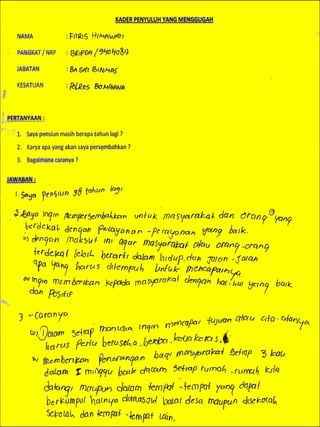 KADER PENYULUH YANG MENGGUGAH
NAMA : FITRIS HIMAWARI
PANGKAT / NRP : BRIPDA / 94040
JABATAN : BA SAT BINMAS
KESATUAN : POLRES BOMBANA
PERTANYAAN :
1. Saya pensiun masih berapa tahun lagi ?
2. Karya apa yang akan saya persembahkan ?
3. Bagaimana caranya ?
JAWABAN :
1. Saya Pensiun 38 tahun lagi
2. Saya ingin mempersembahkan untuk masyarakat dan orang² yang
berdekat dengan pelayanan - pelayanan yang baik.
dengan maksud ini agar masyarakat atau orang-orang
terdekat lebih berarti dalam hidup, dan jalan - jalan
apa yang harus ditempuh untuk pencapaiannya.
ingin memberikan kepada masyarakat dengan hal-hal yang baik
dan Positif
3. Caranya
Dalam Setiap manusia ingin mencapai tujuan atau cita-citanya
harus perlu berusaha, berdoa, kerja keras,
memberikan penerangan bagi masyarakat Setiap 3 kali
dalam 1 minggu baik dalam Setiap rumah - rumah kita
datangi maupun dalam tempat - tempat yang dapat
berkumpul halnya dimasjid balai desa maupun disekolah
Sekolah dan tempat - tempat lain.